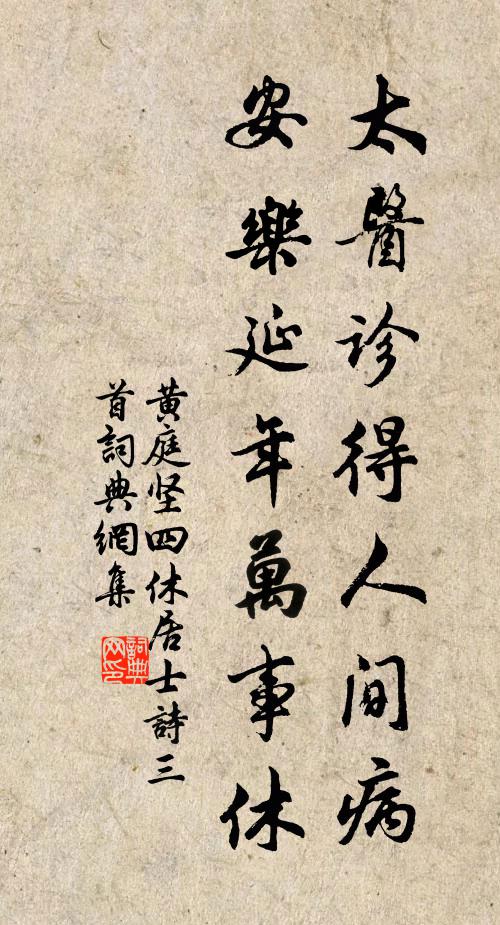 太醫診得人间病
安樂延年萬事休
黄庭坚四休居士詩三
首詞典網集
詞典
网印